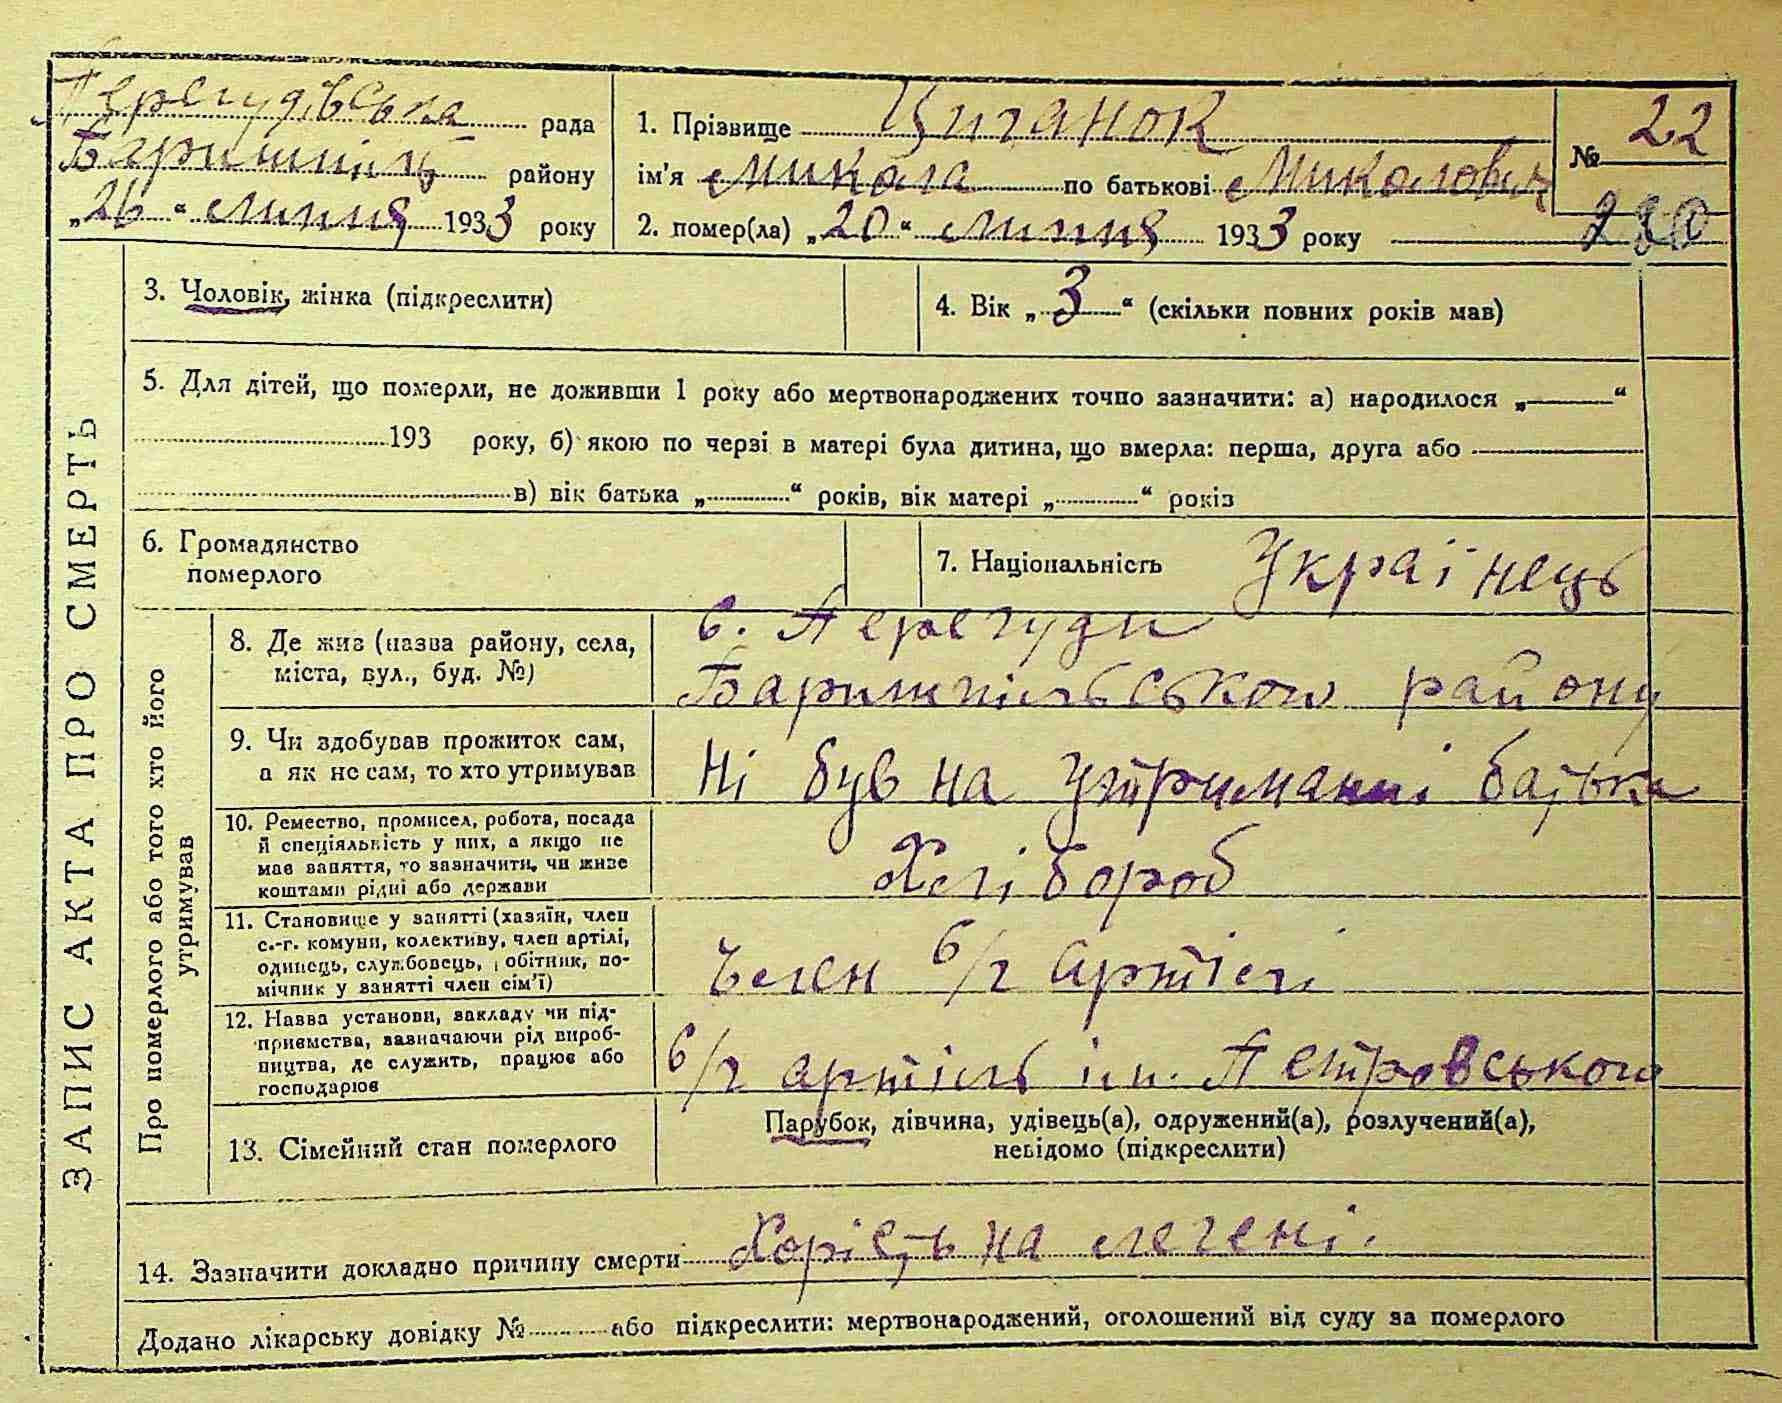 ЗАПИС АКТА ПРО СМЕРТЬ
Перегудівська рада
Баришпіль району
„26“ липня 1933 року
1. Прізвище Циганок
ім'я Микола по батькові Миколович
2. помер(ла) „20“ липня 1933 року
№ 22
280
3. Чоловік, жінка (підкреслити)
4. Вік „3“ (скільки повних років мав)
5. Для дітей, що померли, не доживши 1 року або мертвонароджених точно зазначити: а) народилося „ “
193 року, б) якою по черзі в матері була дитина, що вмерла: перша, друга або
в) вік батька „ “ років, вік матері „ “ років
6. Громадянство
померлого
7. Національність Українець
Про померлого або того хто його
утримував
8. Де жив (назва району, села,
міста, вул., буд. №)
с. Перегуди
Баришпільського району
9. Чи здобував прожиток сам,
а як не сам, то хто утримував
Ні був на утриманні батька
10. Ремество, промисел, робота, посада
й спеціяльність у них, а якщо не
має заняття, то зазначити, чи живе
коштами рідні або держави
Хлібороб
11. Становище у занятті (хазяїн, член
с.-г. комуни, колективу, член артілі,
одинець, службовець, робітник, по-
мічник у занятті член сім'ї)
Член с/г артілі
12. Назва установи, закладу чи під-
приємства, зазначаючи рід вироб-
ництва, де служить, працює або
господарює
с/г артіль ім. Петровського
13. Сімейний стан померлого
Парубок, дівчина, удівець(а), одружений(а), розлучений(а),
невідомо (підкреслити)
14. Зазначити докладно причину смерти Хорість на легені.
Додано лікарську довідку № або підкреслити: мертвонароджений, оголошений від суду за померлого